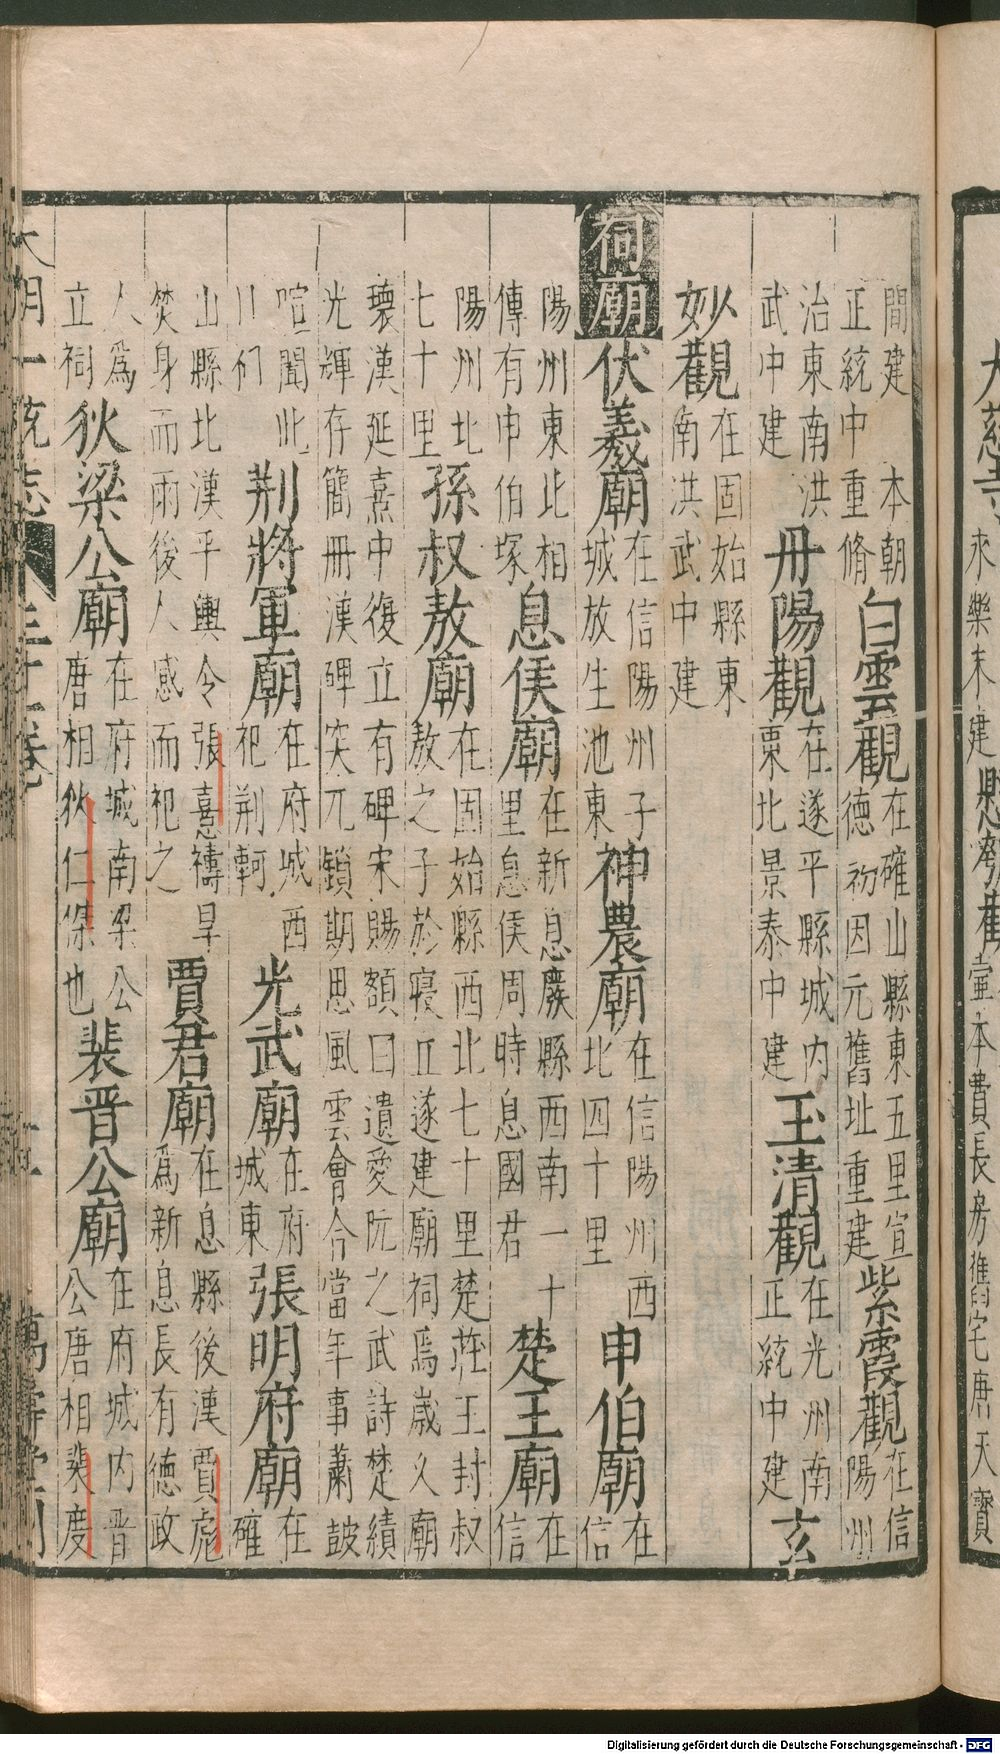 間建　本朝
正統中重脩
白雲觀
在確山縣東五里宣
德初因元舊址重建
紫霞觀
在信
陽州
治東南洪
武中建
丹陽觀
在遂平縣城内
栗北景泰中建
玉清觀
在光州南
正統中建
玄
妙觀
在固始縣東
南洪武中建
祠廟
伏羲廟
在信陽州子
城放生池東
神農廟
在信陽州西
北四十里
申伯廟
在
信
陽州東北相
傳有申伯塚
息侯廟
在新息廢縣西南一十
里息侯周時息國君
楚王廟
在
信
陽州北
七十里
孫叔敖廟
在固始縣西北七十里楚莊王封叔
敖之子於寢丘遂建廟祠焉歲久廟
壞漢延熹中復立有碑宋賜額曰遺愛阮之武詩楚績
光輝存簡冊漢碑突兀鎖期思風雲會合當年事蕭鼓
喧闐此
荆將軍廟
在府城西
祀荆軻
光武廟
在府
城東
張明府廟
在
確
山縣北漢平輿令張憙禱旱
焚身而雨後人感而祀之
賈君廟
在息縣後漢賈彪
爲新息長有德政
人爲
立祠
狄梁公廟
在府城南梁公
唐相狄仁傑也
裴晋公廟
在府城内晋
公唐相裴度
大明一統志
三十一卷
萬壽堂刊
大慈寺
永樂末建
懸壺觀
本費長房舊宅唐天寶
Digitalisierung gefördert durch die Deutsche Forschungsgemeinschaft - DFG